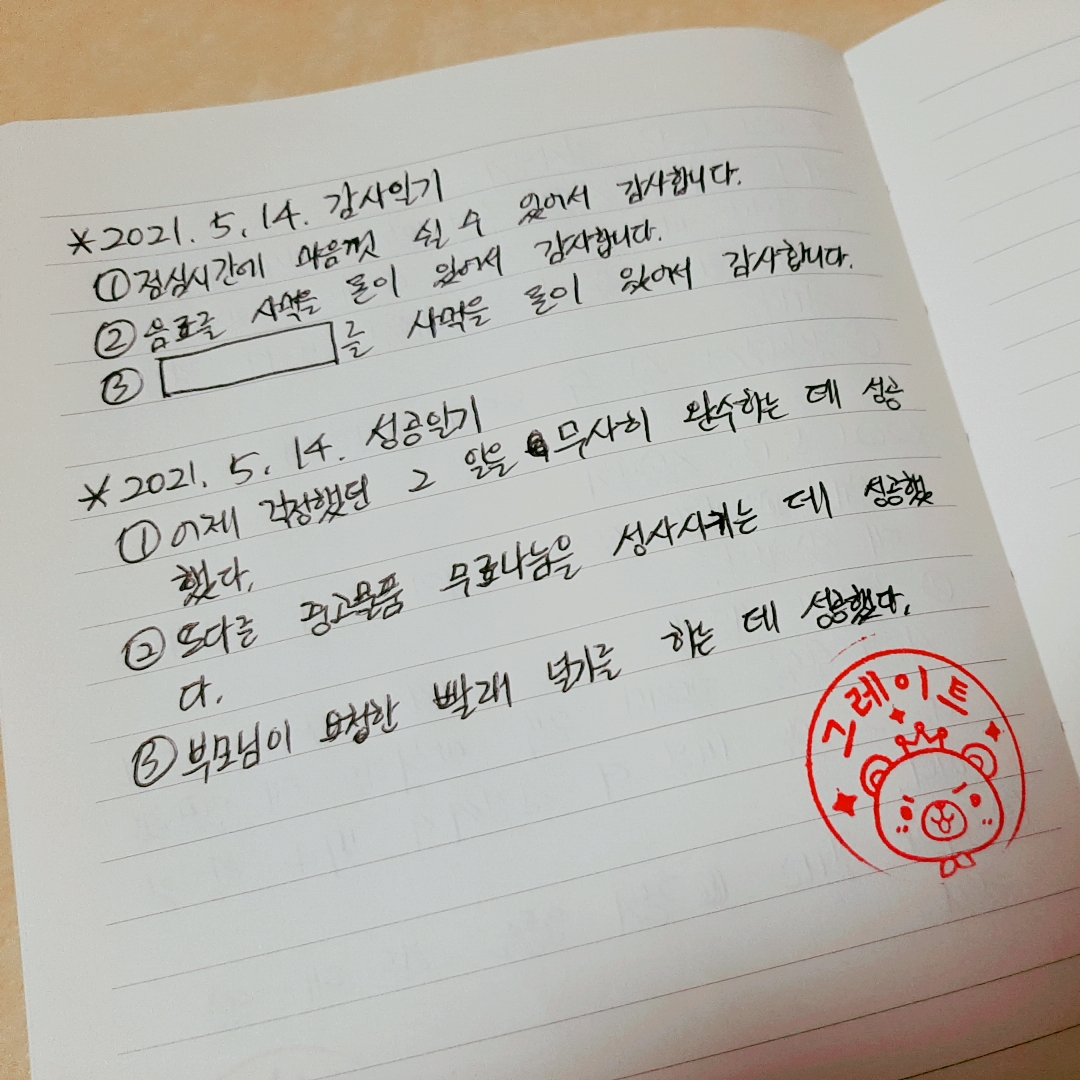 *2021. 5. 14. 감사일기
① 점심시간에 마음껏 쉴 수 있어서 감사합니다.
② 음료를 사먹을 돈이 있어서 감사합니다.
③ 를 사먹을 돈이 있어서 감사합니다.
*2021. 5. 14. 성공일기
① 어제 걱정했던 그 일을 무사히 완수하는 데 성공
했다.
② 또다른 중고물품 무료나눔을 성사시키는 데 성공했
다.
③ 부모님이 요청한 빨래 널기를 하는 데 성공했다.
그레이트